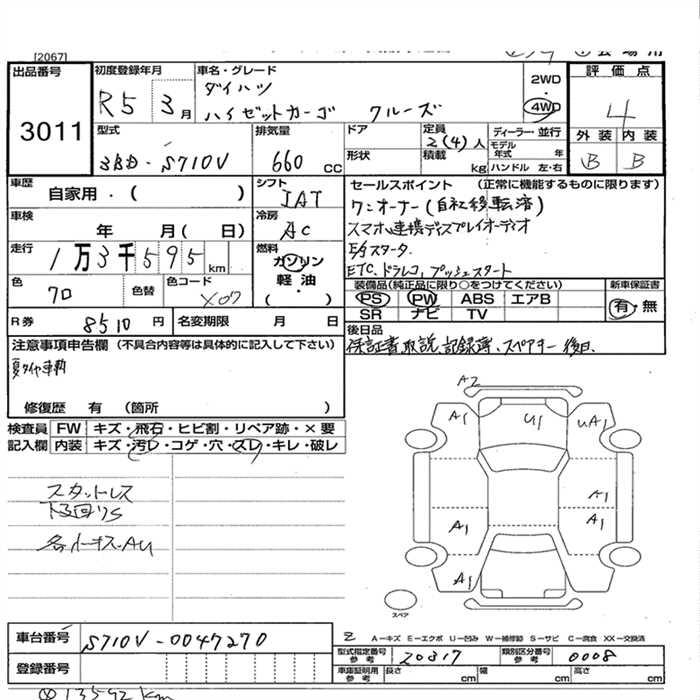 [2067]
出品番号
3011
初度登録年月
R5 3月
車名・グレード
ダイハツ
ハイゼットカーゴ クルーズ
2WD
・
4WD
評価点
4
外装 内装
B B
型式
3BD-S710V
排気量
660 cc
ドア
形状
定員
2(4)人
積載
kg
ディーラー・並行
モデル
年式 年
ハンドル 左・右
車歴
自家用・( )
シフト
IAT
車検
年 月( 日)
冷房
AC
走行
1万3千595km
燃料
ガソリン
軽油
・( )
色
クロ
色替
色コード
X07
R券
8510円
名変期限 月 日
セールスポイント (正常に機能するものに限ります)
ワンオーナー(自社移転済)
スマホ連携ディスプレイオーディオ
E/gスターター
ETC、ドラレコ、プッシュスタート
装備品(純正品に限り○をつけてください)
PS PW ABS エアB
SR ナビ TV
新車保証書
有・無
後日品
保証書、取説、記録簿、スペアキー 後日、
注意事項申告欄(不具合内容等は具体的に記入して下さい)
夏タイヤ車載
修復歴 有 (箇所 )
検査員
記入欄
FW キズ・飛石・ヒビ割・リペア跡・×要
内装 キズ・汚レ・コゲ・穴・スレ・キレ・破レ
スタットレス
下回りS
各所キズ・AU
A2
A1
U1
UA1
A1
A1
A1
A1
スペア
車台番号
S710V-0047270
登録番号
Z A-キズ E-エクボ U-凹み W-補修跡 S-サビ C-腐食 XX-交換済
型式指定番号
参考
20317
類別区分番号
参考
0008
車庫証明用
参考
長さ cm 幅 cm 高さ cm
13592km